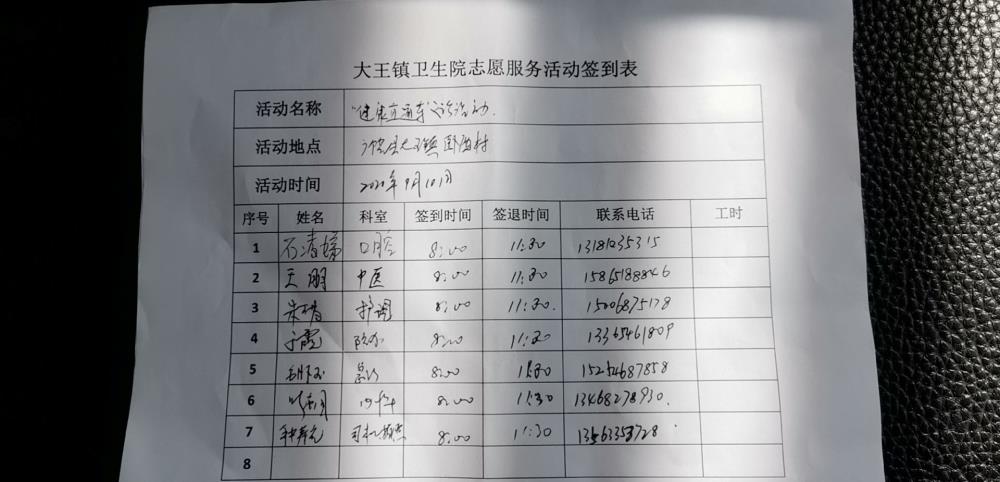 大王镇卫生院志愿服务活动签到表
活动名称 "健康直通车"义诊活动.
活动地点 大王镇 村
活动时间 2020年9月10日
序号 姓名 科室 签到时间 签退时间 联系电话 工时
1 石清娣 口腔 8:00 11:30 13181035315
2 王朋 中医 8:00 11:30 15865188846
3 朱靖 护理 8:00 11:30. 15006875178
4 8:00 11:30 13365461809
5 8:00 11:30 15254687858
6 8:00 11:30 13468278930.
7 8:00 11:30
8